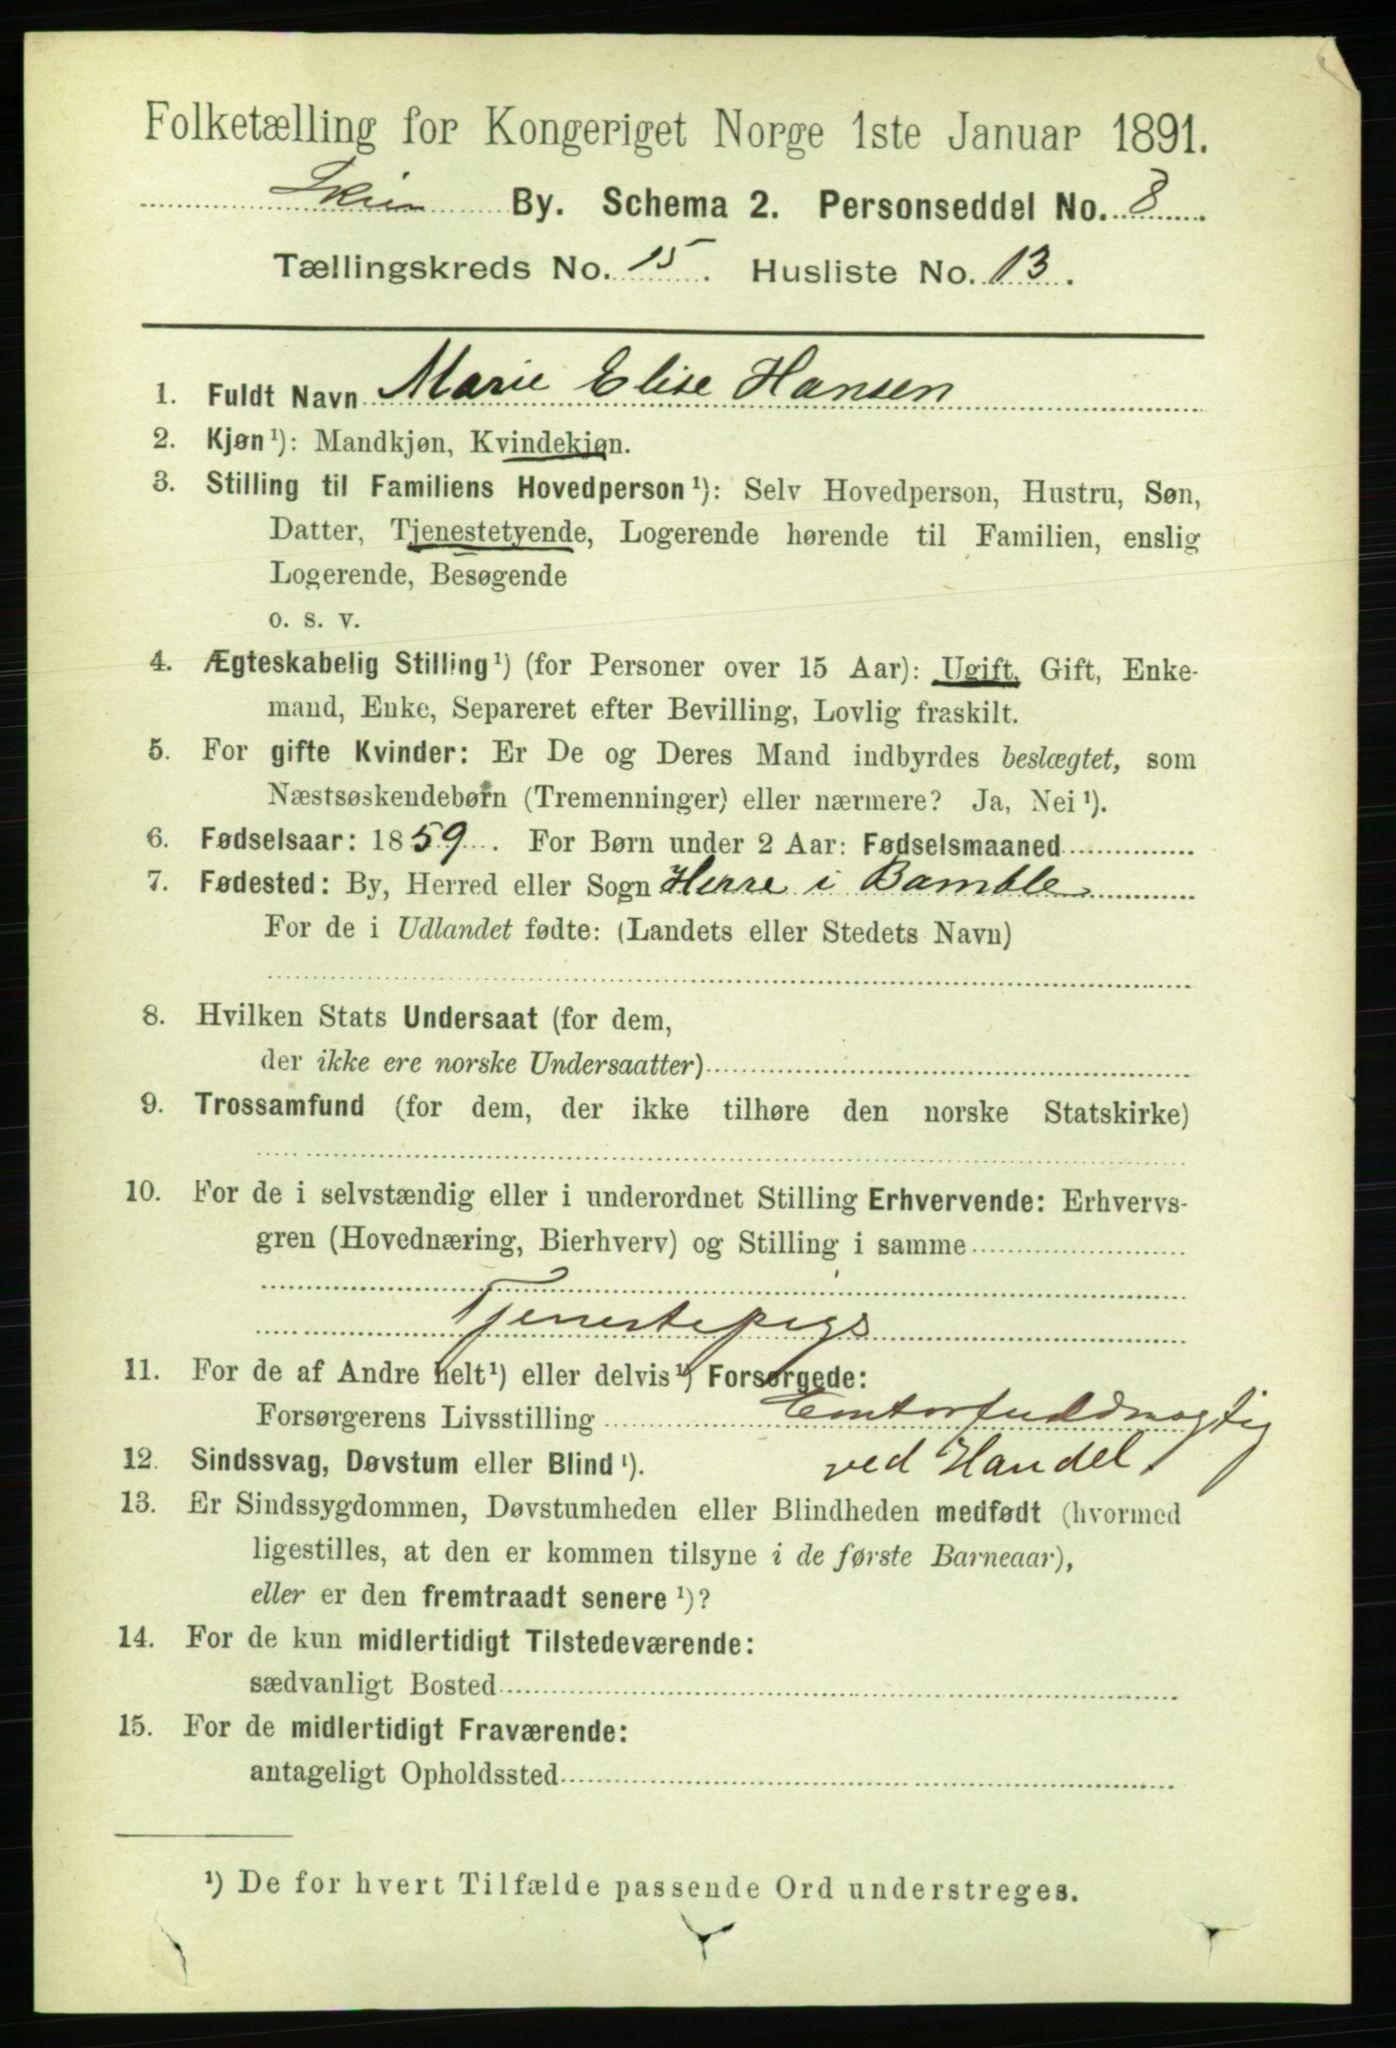 Folketælling for Kongeriget Norge 1ste Januar 1891.
Skien By. Schema 2. Personseddel No. 8
Tællingskreds No. 15. Husliste No. 13.
1. Fuldt Navn Marie Elise Hansen
2. Kjøn¹): Mandkjøn, Kvindekjøn.
3. Stilling til Familiens Hovedperson¹): Selv Hovedperson, Hustru, Søn,
Datter, Tjenestetyende, Logerende hørende til Familien, enslig
Logerende, Besøgende
o. s. v.
4. Ægteskabelig Stilling¹) (for Personer over 15 Aar): Ugift, Gift, Enke-
mand, Enke, Separeret efter Bevilling, Lovlig fraskilt.
5. For gifte Kvinder: Er De og Deres Mand indbyrdes beslægtet, som
Næstsøskendebørn (Tremenninger) eller nærmere? Ja, Nei¹).
6. Fødselsaar: 1859. For Børn under 2 Aar: Fødselsmaaned
7. Fødested: By, Herred eller Sogn Herre i Bamble
For de i Udlandet fødte: (Landets eller Stedets Navn)
8. Hvilken Stats Undersaat (for dem,
der ikke ere norske Undersaatter)
9. Trossamfund (for dem, der ikke tilhøre den norske Statskirke)
10. For de i selvstændig eller i underordnet Stilling Erhvervende: Erhvervs-
gren (Hovednæring, Bierhverv) og Stilling i samme
Tjenestepige
11. For de af Andre helt¹) eller delvis¹) Forsørgede:
Forsørgerens Livsstilling Contorfuldmægtig
12. Sindssvag, Døvstum eller Blind¹). ved Handel.
13. Er Sindssygdommen, Døvstumheden eller Blindheden medfødt (hvormed
ligestilles, at den er kommen tilsyne i de første Barneaar),
eller er den fremtraadt senere¹)?
14. For de kun midlertidigt Tilstedeværende:
sædvanligt Bosted
15. For de midlertidigt Fraværende:
antageligt Opholdssted
¹) De for hvert Tilfælde passende Ord understreges.